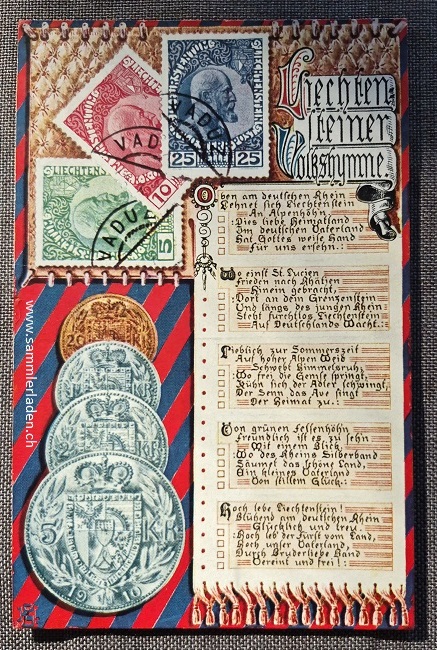 LIECHTENSTEIN
VADUZ
10
25
25
LIECHTEN
VADUZ
5
Liechten
steiner
Volkshymne
Oben am deutschen Rhein
Lehnet sich Liechtenstein
An Alpenhöhn.
Dies liebe Heimatland
Im deutschen Vaterland
Hat Gottes weise Hand
Für uns ersehn.:
Wo einst St. Lucien
Frieden nach Rhätien
Hinein gebracht,
Dort an dem Grenzenstein
Und längs des jungen Rhein
Steht furchtlos Liechtenstein
Auf Deutschlands Wacht.:
Lieblich zur Sommerszeit
Auf hoher Alpen Weid
Schwebt Himmelsruh,
Wo frei die Gemse springt,
Kühn sich der Adler schwingt,
Der Senn das Ave singt
Der Heimat zu.:
Von grünen Felsenhöhn
Freundlich ist es zu sehn
Mit einem Blick,
Wo des Rheins Silberband
Säumet das schöne Land,
Ein kleines Vaterland
Von stillem Glück.:
Hoch lebe Liechtenstein!
Blühend am deutschen Rhein
Glücklich und treu.
Hoch leb' der Fürst vom Land,
Hoch unser Vaterland,
Durch Bruderliebe Band
Vereint und frei!:
20 KR
KR
KR
5 KR
1910
www.sammlerladen.ch